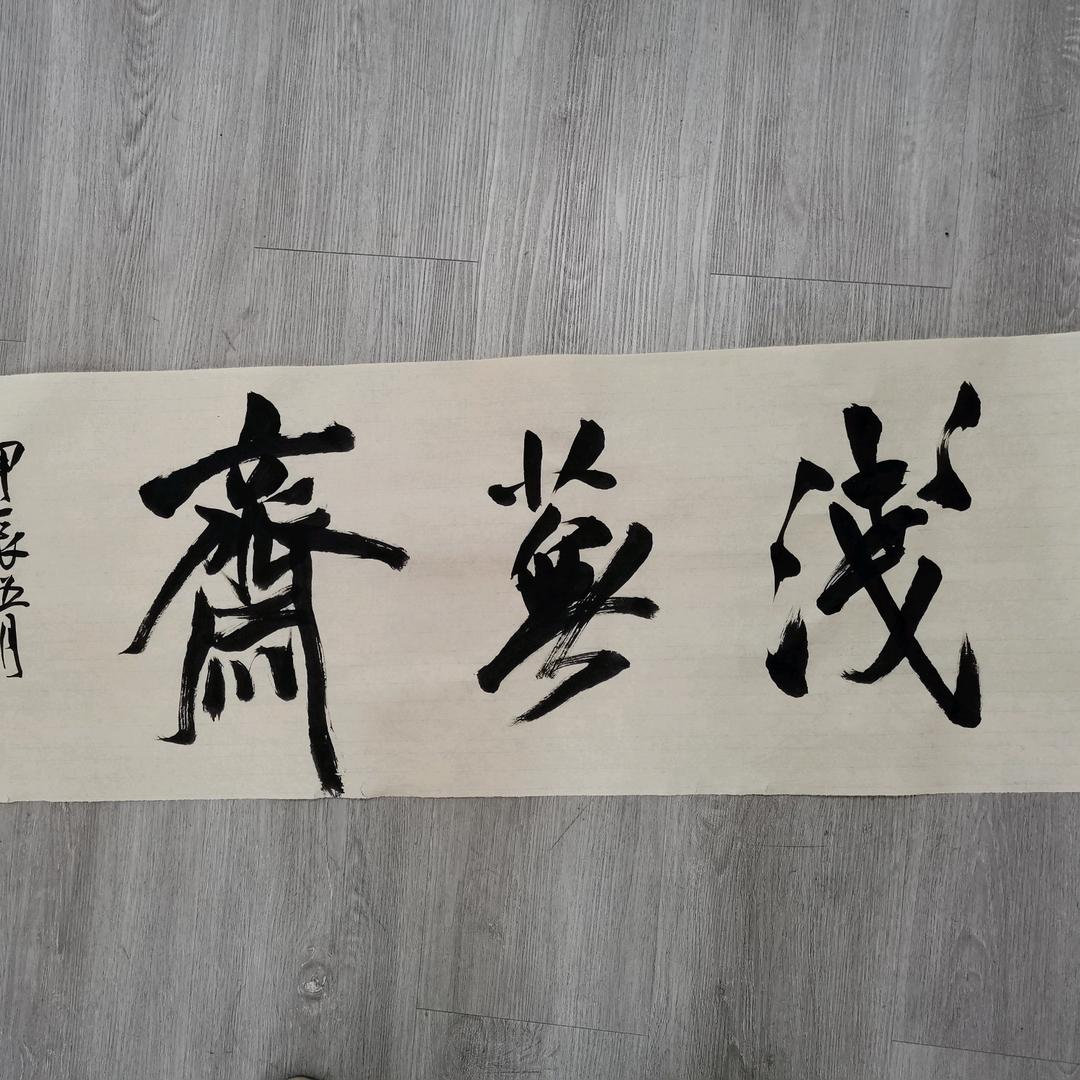 淺夢齋
甲辰五月